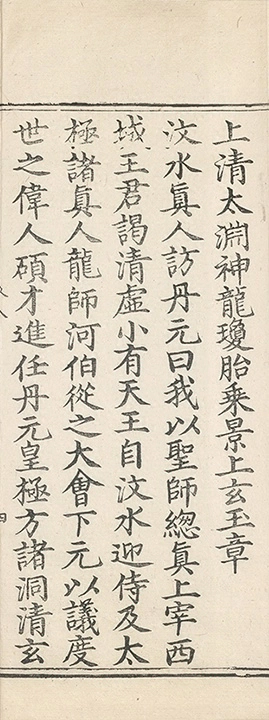 上清太淵神龍瓊胎乘景上玄玉章
汶水眞人訪丹元曰我以聖師總眞上宰西
城王君謁清虛小有天王自汶水迎侍及太
極諸眞人龍師河伯從之大會下元以議度
世之偉人碩才進任丹元皇極方諸洞清玄
四